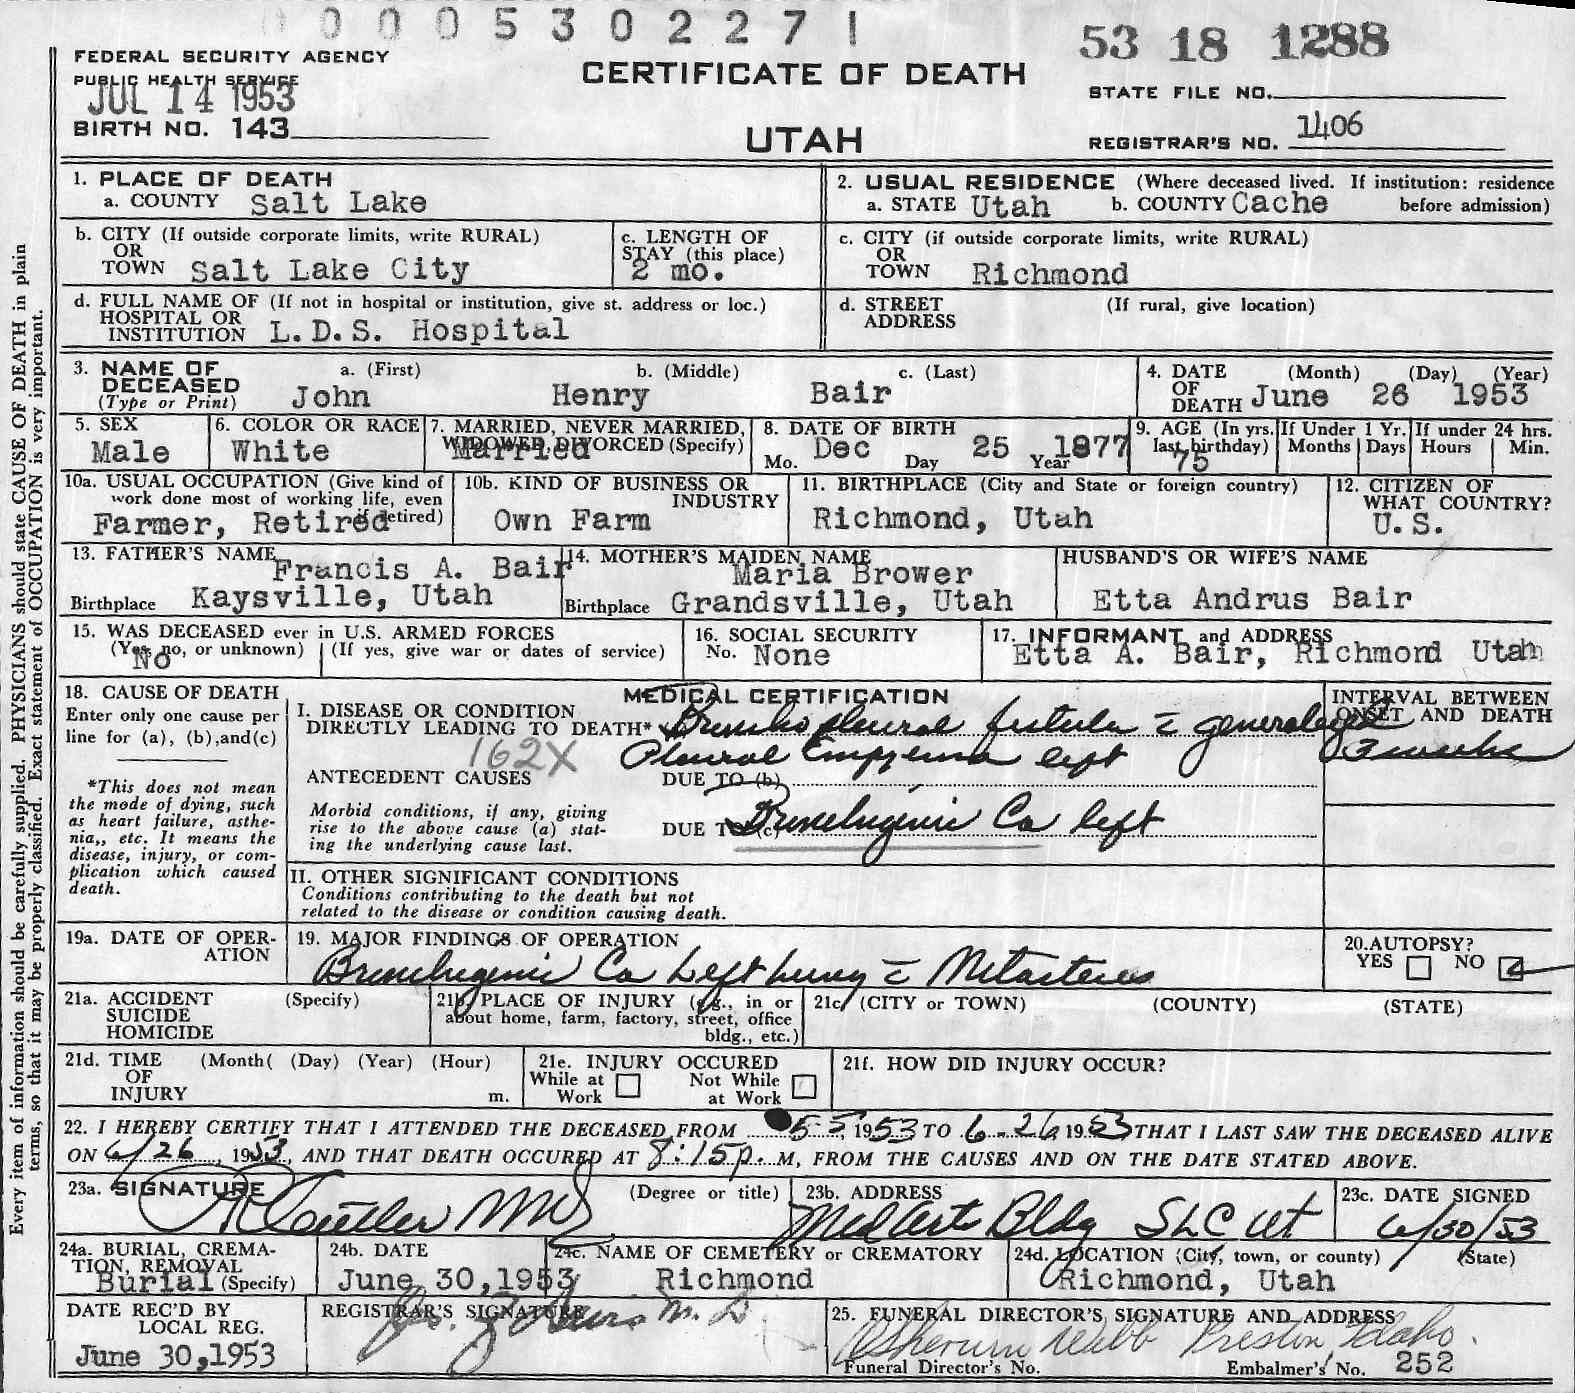 0 0 0 5 3 0 2 2 7 1
53 18 1288
FEDERAL SECURITY AGENCY
PUBLIC HEALTH SERVICE
JUL 14 1953
BIRTH NO. 143
CERTIFICATE OF DEATH
UTAH
STATE FILE NO.
REGISTRAR'S NO. 1406
Every item of information should be carefully supplied. PHYSICIANS should state CAUSE OF DEATH in plain
terms, so that it may be properly classified. Exact statement of OCCUPATION is very important.
1. PLACE OF DEATH
a. COUNTY Salt Lake
2. USUAL RESIDENCE (Where deceased lived. If institution: residence
a. STATE Utah b. COUNTY Cache before admission)
b. CITY (If outside corporate limits, write RURAL)
OR
TOWN Salt Lake City
c. LENGTH OF
STAY (this place)
2 mo.
c. CITY (if outside corporate limits, write RURAL)
OR
TOWN Richmond
d. FULL NAME OF (If not in hospital or institution, give st. address or loc.)
HOSPITAL OR
INSTITUTION L.D.S. Hospital
d. STREET (If rural, give location)
ADDRESS
3. NAME OF a. (First) b. (Middle) c. (Last)
DECEASED
(Type or Print) John Henry Bair
4. DATE (Month) (Day) (Year)
OF
DEATH June 26 1953
5. SEX
Male
6. COLOR OR RACE
White
7. MARRIED, NEVER MARRIED,
WIDOWED, DIVORCED (Specify)
Married
8. DATE OF BIRTH
Mo. Dec Day 25 Year 1877
9. AGE (In yrs.
last birthday)
75
If Under 1 Yr.
Months Days
If under 24 hrs.
Hours Min.
10a. USUAL OCCUPATION (Give kind of
work done most of working life, even
if retired)
Farmer, Retired
10b. KIND OF BUSINESS OR
INDUSTRY
Own Farm
11. BIRTHPLACE (City and State or foreign country)
Richmond, Utah
12. CITIZEN OF
WHAT COUNTRY?
U.S.
13. FATHER'S NAME Francis A. Bair
Birthplace Kaysville, Utah
14. MOTHER'S MAIDEN NAME
Maria Brower
Birthplace Grandsville, Utah
HUSBAND'S OR WIFE'S NAME
Etta Andrus Bair
15. WAS DECEASED ever in U.S. ARMED FORCES
(Yes, no, or unknown) (If yes, give war or dates of service)
No
16. SOCIAL SECURITY
No. None
17. INFORMANT and ADDRESS
Etta A. Bair, Richmond Utah
18. CAUSE OF DEATH
Enter only one cause per
line for (a), (b), and (c)
*This does not mean
the mode of dying, such
as heart failure, asthe-
nia,, etc. It means the
disease, injury, or com-
plication which caused
death.
MEDICAL CERTIFICATION
I. DISEASE OR CONDITION
DIRECTLY LEADING TO DEATH* Broncho pleural fistula c generalized
162X
Pleural Empyema left
INTERVAL BETWEEN
ONSET AND DEATH
ANTECEDENT CAUSES
DUE TO (b)
Morbid conditions, if any, giving
rise to the above cause (a) stat-
ing the underlying cause last.
DUE TO (c) Bronchogenic Ca left
II. OTHER SIGNIFICANT CONDITIONS
Conditions contributing to the death but not
related to the disease or condition causing death.
19a. DATE OF OPER-
ATION
19. MAJOR FINDINGS OF OPERATION
Bronchogenic Ca Left lung c Metastases
20. AUTOPSY?
YES NO
21a. ACCIDENT (Specify)
SUICIDE
HOMICIDE
21b. PLACE OF INJURY (e.g., in or
about home, farm, factory, street, office
bldg., etc.)
21c. (CITY or TOWN) (COUNTY) (STATE)
21d. TIME (Month( (Day) (Year) (Hour)
OF
INJURY m.
21e. INJURY OCCURED
While at Work Not While at Work
21f. HOW DID INJURY OCCUR?
22. I HEREBY CERTIFY THAT I ATTENDED THE DECEASED FROM 5-5, 1953 TO 6-26, 1953 THAT I LAST SAW THE DECEASED ALIVE
ON 6/26, 1953, AND THAT DEATH OCCURED AT 8:15 p. M, FROM THE CAUSES AND ON THE DATE STATED ABOVE.
23a. SIGNATURE (Degree or title)
Cutler MD
23b. ADDRESS
Med Arts Bldg SLC Ut
23c. DATE SIGNED
6/30/53
24a. BURIAL, CREMA-
TION, REMOVAL
Burial (Specify)
24b. DATE
June 30, 1953
24c. NAME OF CEMETERY or CREMATORY
Richmond
24d. LOCATION (City, town, or county) (State)
Richmond, Utah
DATE REC'D BY
LOCAL REG.
June 30, 1953
REGISTRAR'S SIGNATURE
M. D.
25. FUNERAL DIRECTOR'S SIGNATURE AND ADDRESS
Webb Preston, Idaho.
Funeral Director's No. Embalmer's No. 252